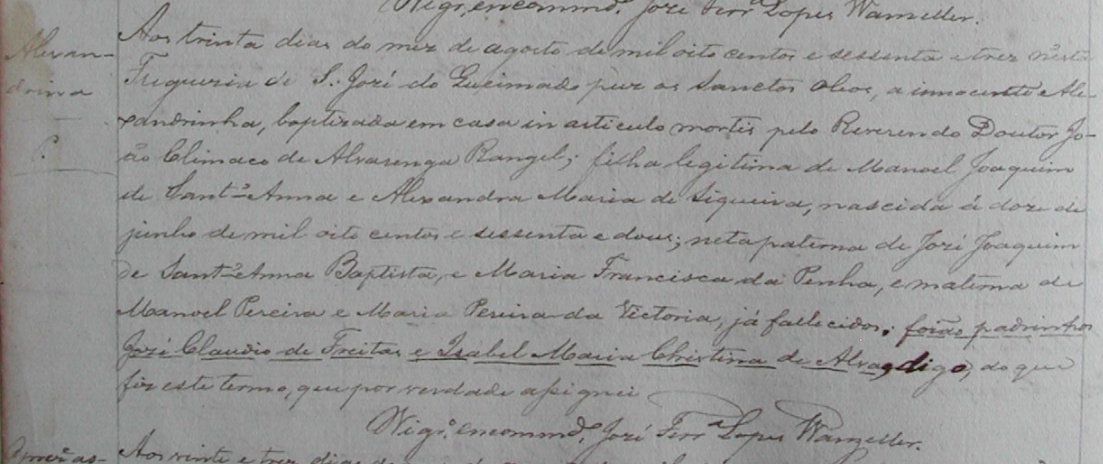 Vigrº encommdº José Ferrª Lopes Wanzeller.
Alexan-
drina
Aos trinta dias do mez de agosto de mil oito centos e sessenta e trez nesta
Freguezia de S. José do Queimado puz os Sanctos oleos, a innocente Ale-
xandrinha, baptizada em casa in articulo mortis pelo Reverendo Doutor Jo-
ão Climaco de Alvarenga Rangel; filha legitima de Manoel Joaquim
de Sant'Anna e Alexandra Maria de Siqueira, nascida á doze de
junho de mil oito centos e sessenta e dous; neta paterna de José Joaquim
de Sant'Anna Baptista, e Maria Francisca da Penha, e materna de
Manoel Pereira e Maria Pereira da Victoria, já fallecidos; forão padrinhos
José Claudio de Freitas e Isabel Maria Christina de digo, do que
fiz este termo, que por verdade assignei
Vigrº encommdº José Ferrª Lopes Wanzeller.
Aos vinte e trez dias